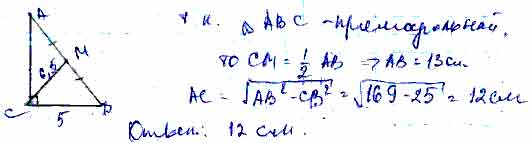 A
M
6,5
C
B
5
т.к. △ABC - прямоугольный,
то CM = 1/2 AB ⇒ AB = 13 см.
AC = √(AB² - CB²) = √(169 - 25) = 12 см
Ответ: 12 см.